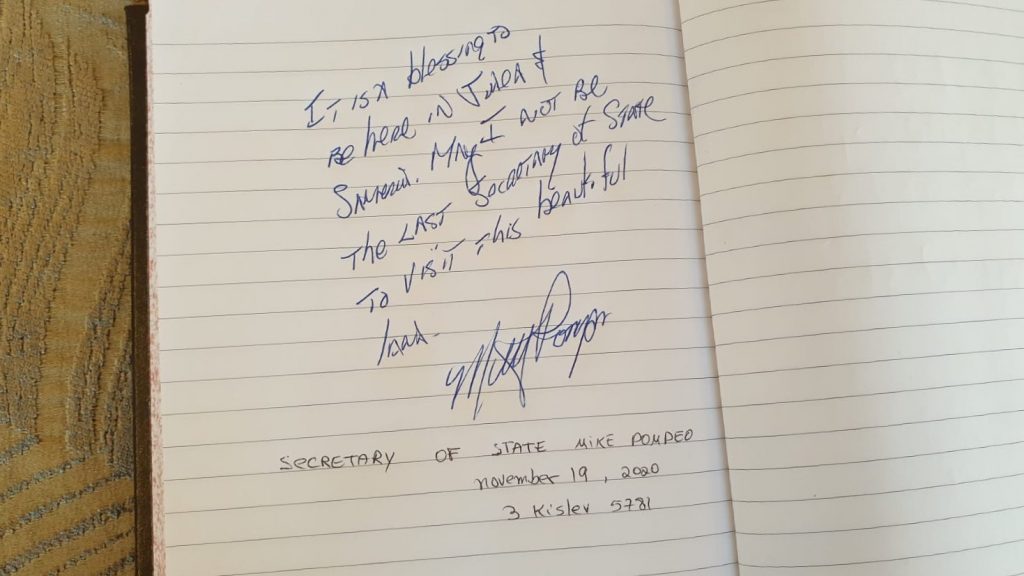 IT IS A blessing to
Be here IN Judea &
Samaria. May I NOT Be
The LAST Secretary of STATE
To VISIT This beautiful
land.
Mike Pompeo
SECRETARY OF STATE MIKE POMPEO
november 19, 2020
3 Kislev 5781